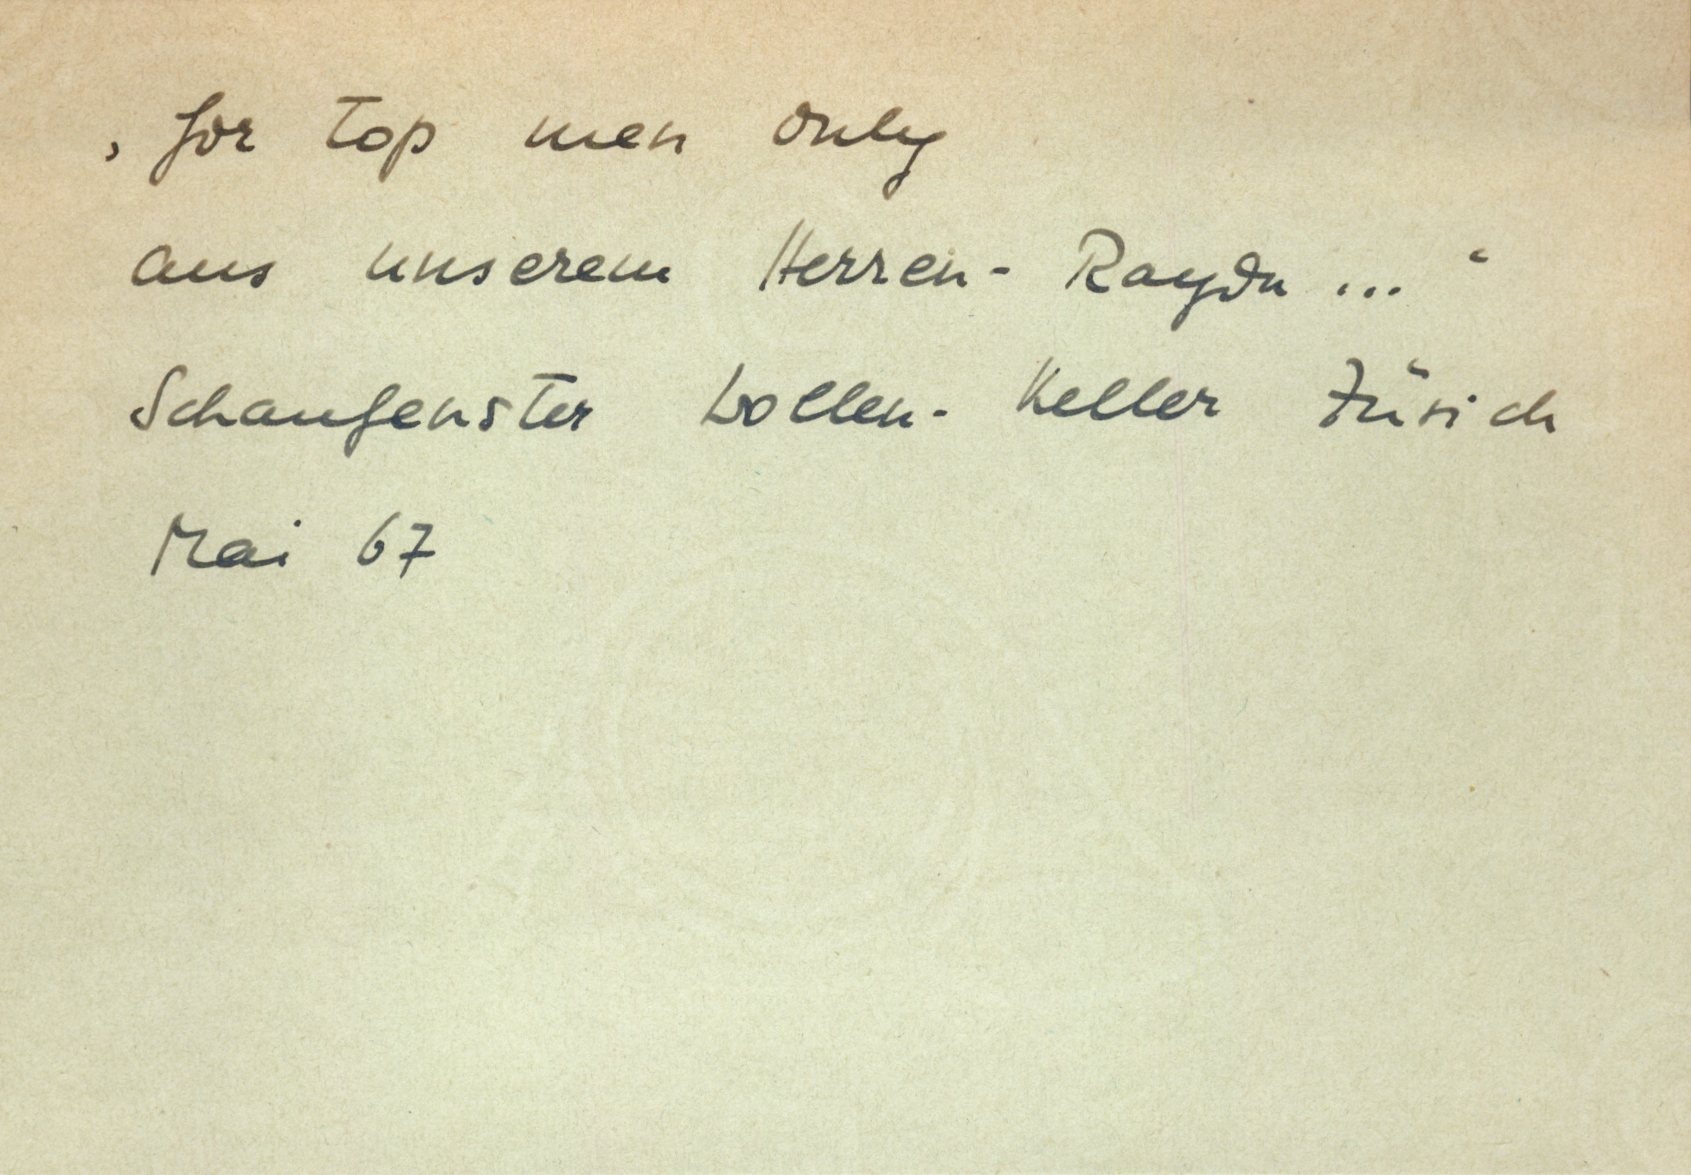 ‚for top men only
aus unserem Herren-Rayon ...‘
Schaufenster Wollen-Keller Zürich
Mai 67